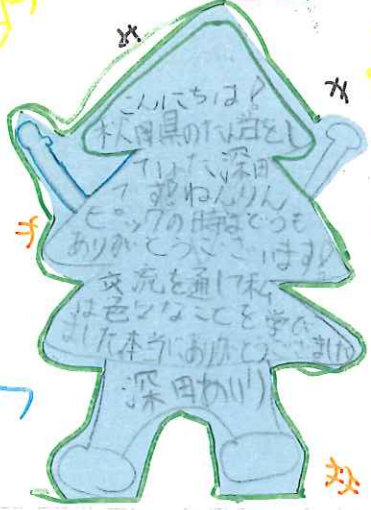 こんにちは!
秋田県のたん当をし
ていた、深田
です。ねんりん
ピックの時はどうも
ありがとうございます!
交流を通して私
は色々なことを学び
ました本当にありがとうございました
深田あいり